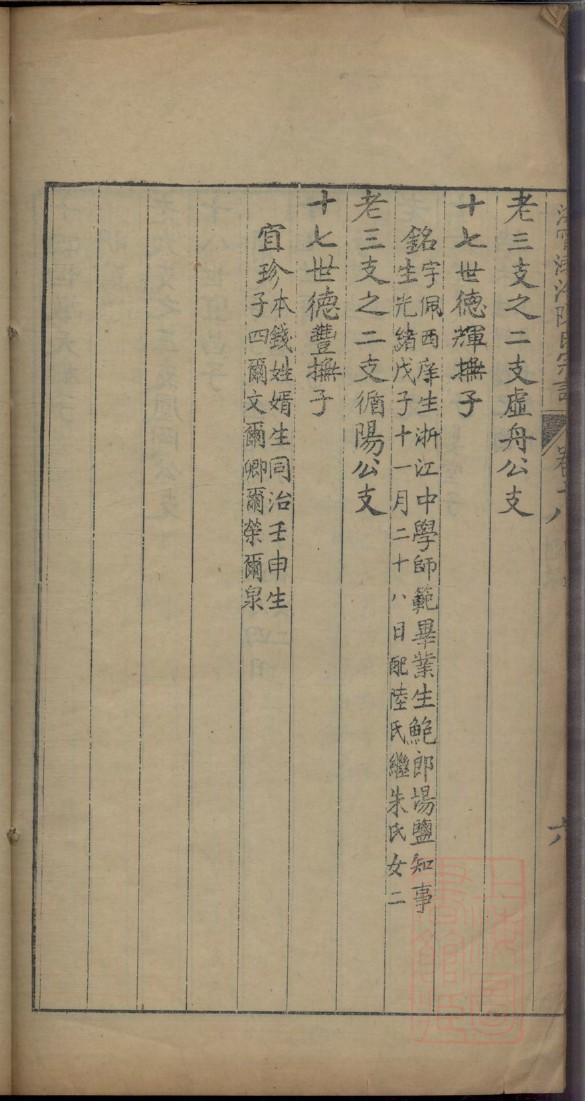 老三支之二支虛舟公支
十七世德輝撫子
銘字佩西庠生浙江中學師範畢業生鮑郎場鹽知事
生光緒戊子十一月二十八日配陸氏繼朱氏女二
老三支之二支循陽公支
十七世德豐撫子
宜珍本錢姓婿生同治壬申生
子四爾文爾卿爾榮爾泉